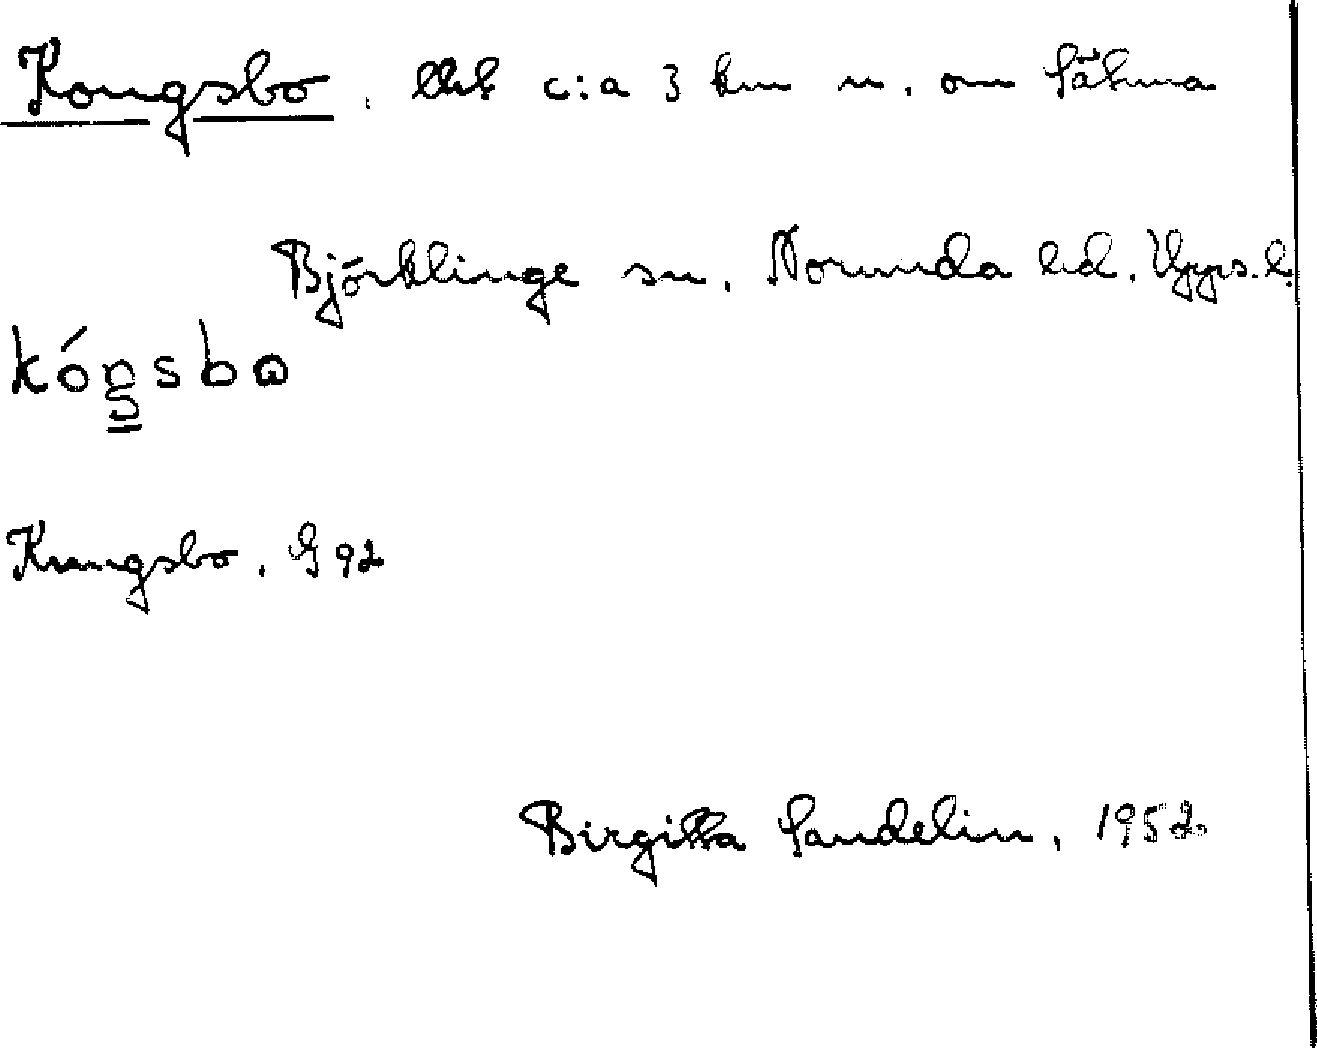 Kongsbo, c:a 3 km n. om Sätuna
Björklinge sn, Norunda hd. Upps. l.
kóngsbo
Kungsbo, G 92
Birgitta Sandelin, 1952.